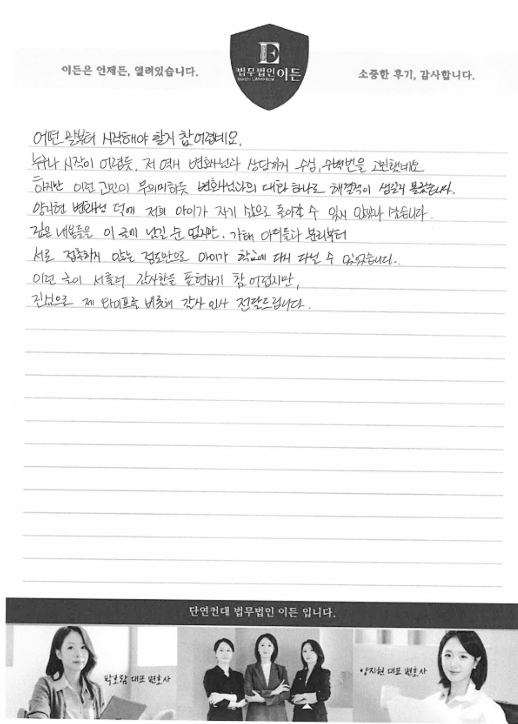 이든은 언제든, 열려있습니다.
E
법무법인 이든
소중한 후기, 감사합니다.
어떤 말부터 시작해야 할지 참 어렵네요.
누구나 시작이 어렵듯, 저 역시 변호사님과 상담하기 수십, 수백번을 고민했네요
하지만 이런 고민이 무의미하듯 변호사님과의 대화 하나로 해결책이 생길지 몰랐습니다.
양지현 변호사님 덕에 저희 아이가 자기 삶으로 돌아갈 수 있지 않았나 싶습니다.
깊은 내용들을 이 글에 남길 순 없지만, 가해 아이들과 분리부터
서로 접촉하지 않는 점만으로 아이가 학교에 다시 다닐 수 있었습니다.
이런 글이 서툴러 감사함을 표현하기 참 어렵지만,
진심으로 제 와이프를 비롯해 감사 인사 전달드립니다.
단연컨대 법무법인 이든 입니다.
박보람 대표 변호사
양지현 대표 변호사